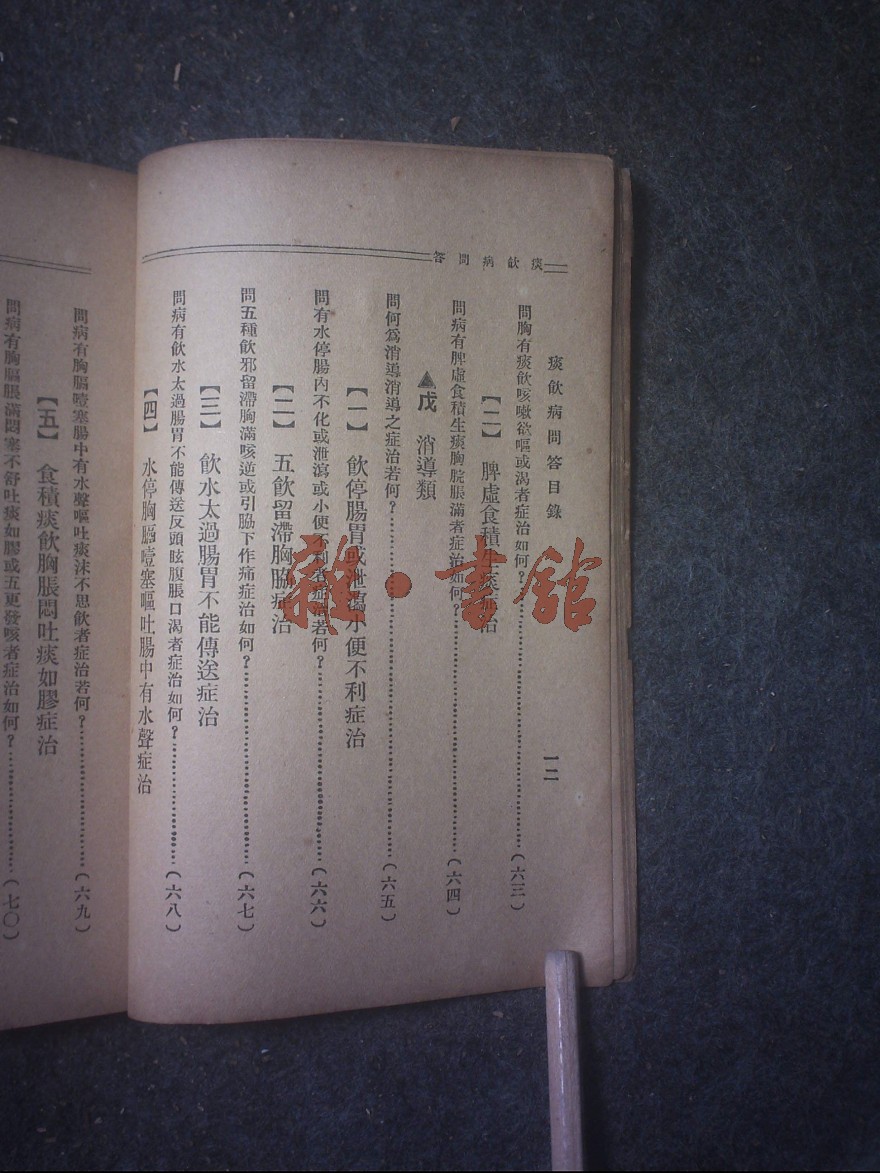 痰飲病問答
痰飲病問答目錄
一二
問胸有痰飲咳嗽欲嘔或渴者症治如何?(六三)
【二】 脾虛食積生痰症治
問病有脾虛食積生痰胸脘脹滿者症治如何?(六四)
▲戊 消導類
問何爲消導消導之症治若何?(六五)
【一】 飲停腸胃或泄瀉小便不利症治
問有水停腸內不化或泄瀉或小便不利者症治若何?(六六)
【二】 五飲留滯胸脇症治
問五種飲邪留滯胸滿咳逆或引脇下作痛症治如何?(六七)
【三】 飲水太過腸胃不能傳送症治
問病有飲水太過腸胃不能傳送反頭眩腹脹口渴者症治如何?(六八)
【四】 水停胸膈噎塞嘔吐腸中有水聲症治
問病有胸膈噎塞腸中有水聲嘔吐痰沫不思飲者症治若何?(六九)
【五】 食積痰飲胸脹悶吐痰如膠症治
問病有胸膈脹滿悶塞不舒吐痰如膠或五更發咳者症治如何?(七〇)
雜·書館